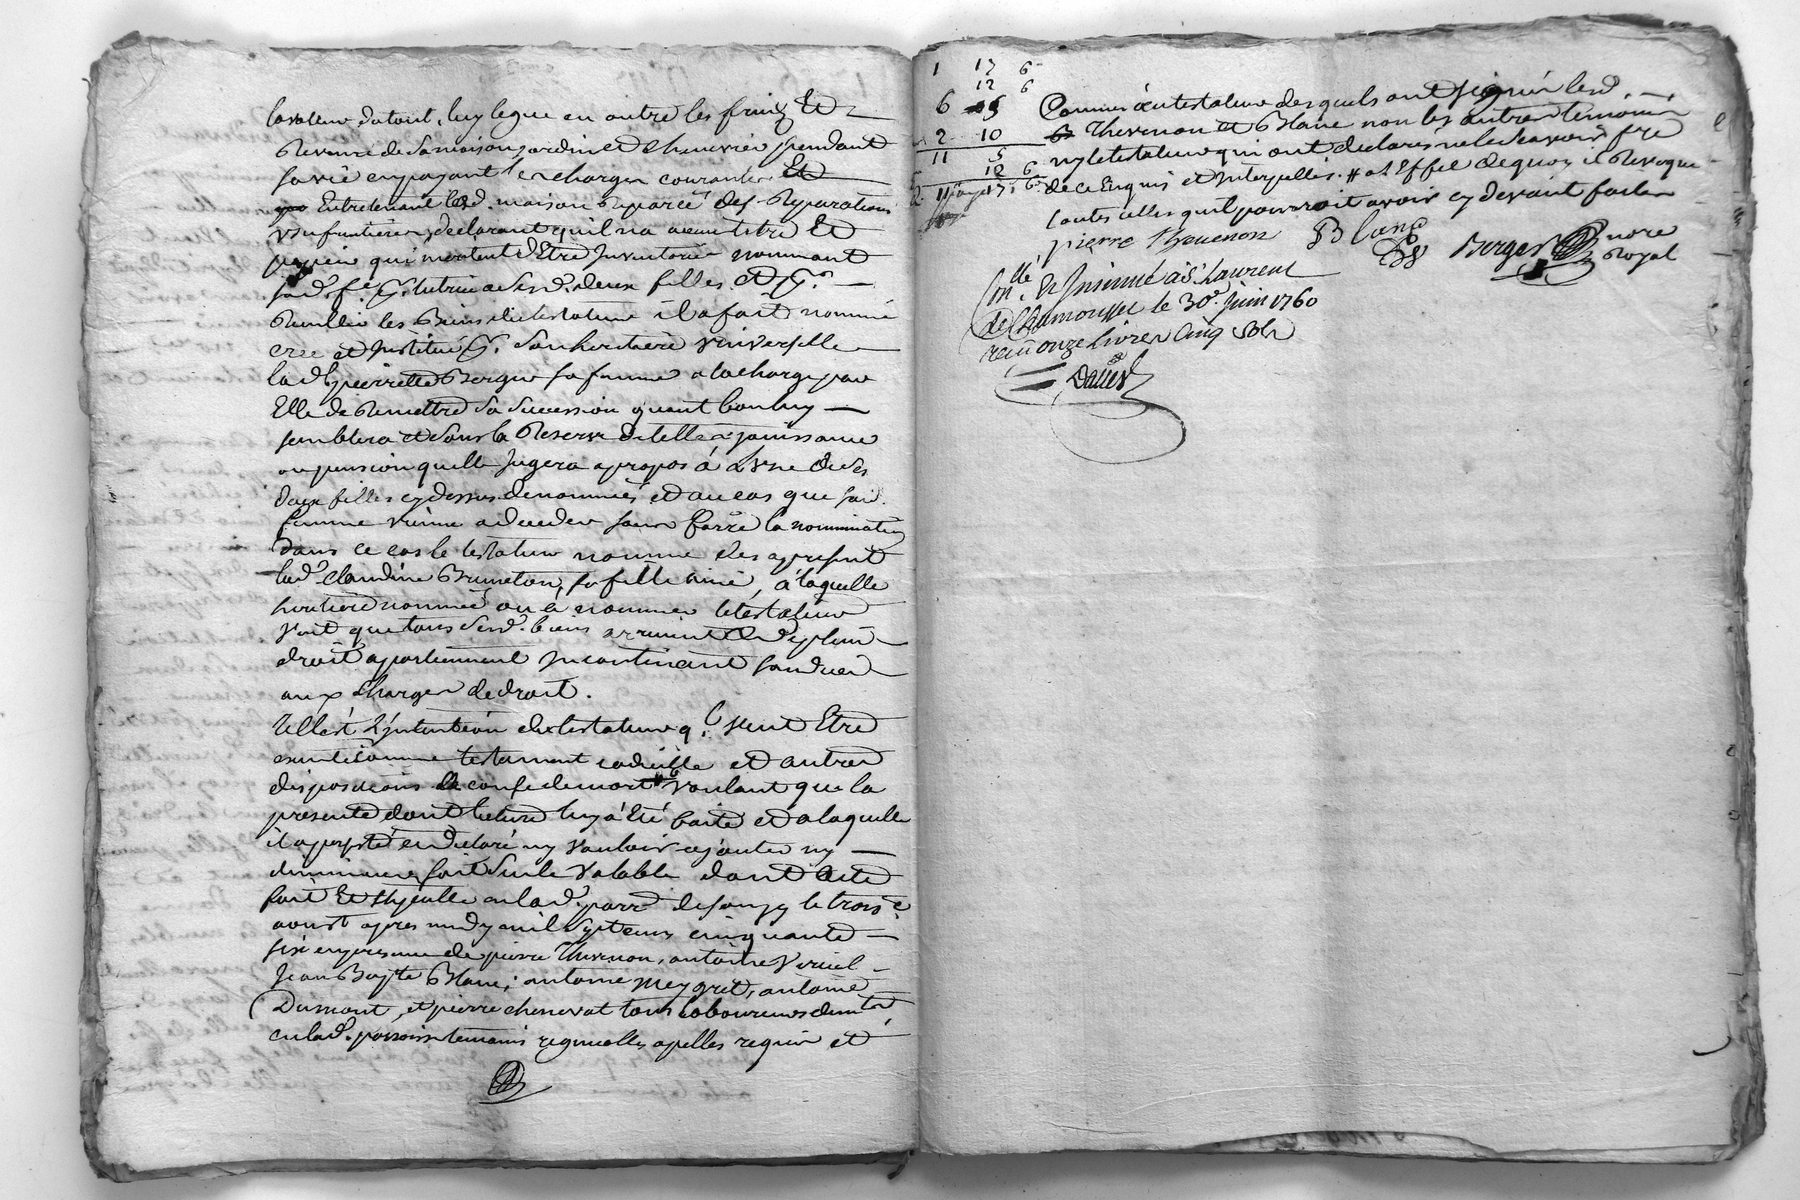 la valeur du tout, luy legue en outre les fruits Et
Revenus de sa maison, jardin et cheneviere pendant
sa vie en payant les charges courantes Et
Entretenant lad. maison Reparée des Reparations
usufruitieres, declarant qu'il n'a aucun titre Et
papier qui meritent d'Etre Inventorié nommant
sad. fe. pr. tutrice a sesd. deux filles Et pr.
Recullir les Biens du testateur il a fait nommé
crée et Institué pr. son heritiere universelle
lad. pierrette Berger sa femme a la charge par
Elle de Remettre sa succession quant bon luy
semblera et sous la Reserve de telle jouissance
ou pension quelle jugera apropos à L'une de ses
deux filles cy dessus denommées et au cas que sad.
femme vienne a deceder sans faire la nomination
dans ce cas le testateur nomme des a present
lad. Claudine Bruneton, sa fille ainé, à laquelle
heritiere nommée ou a nommer le testateur
veut que tous sesd. biens arrivent Et de plein
droit apartiennent Incontinant son deces
aux charges de droit.
Telle est L'intention du testateur q. veut Etre
executé comme testament codicille et autres
dispositions de cause de mort # voulant que la
presente dont lecture luy à Eté faite et a laquelle
il a persisté et declaré ny vouloir ajouter ny
diminuer soit seule valable dont Acte
fait Et stipulé en lad. parr. de souzy le trois e.
aoust apres midy mil sept cens cinquante
six en presence de pierre Thevenon, antoine
Jean Bapte Blanc, antoine meygret, antoine
Dumont, et pierre chenevat tous laboureurs demts
en lad. paroisse temoins apellés requis et
1 17 6
12 6
6 5
2 10
11 5
Connus du testateur desquels ont signé lesd.
Thevenon et Blanc non les autres temoins
ny le testateur qui ont declarés ne le scavoir fre
de ce Enquis et Interpellés. # a L'Effet de quoy il Revoque
toutes celles qu'il pourroit avoir cy devant faites
pierre thevenon Blanc Berger nore
Royal
Conllé Et Insinué à St Laurent
de Chamousset le 30e. juin 1760
reçu onze livres cinq sols
Dalles